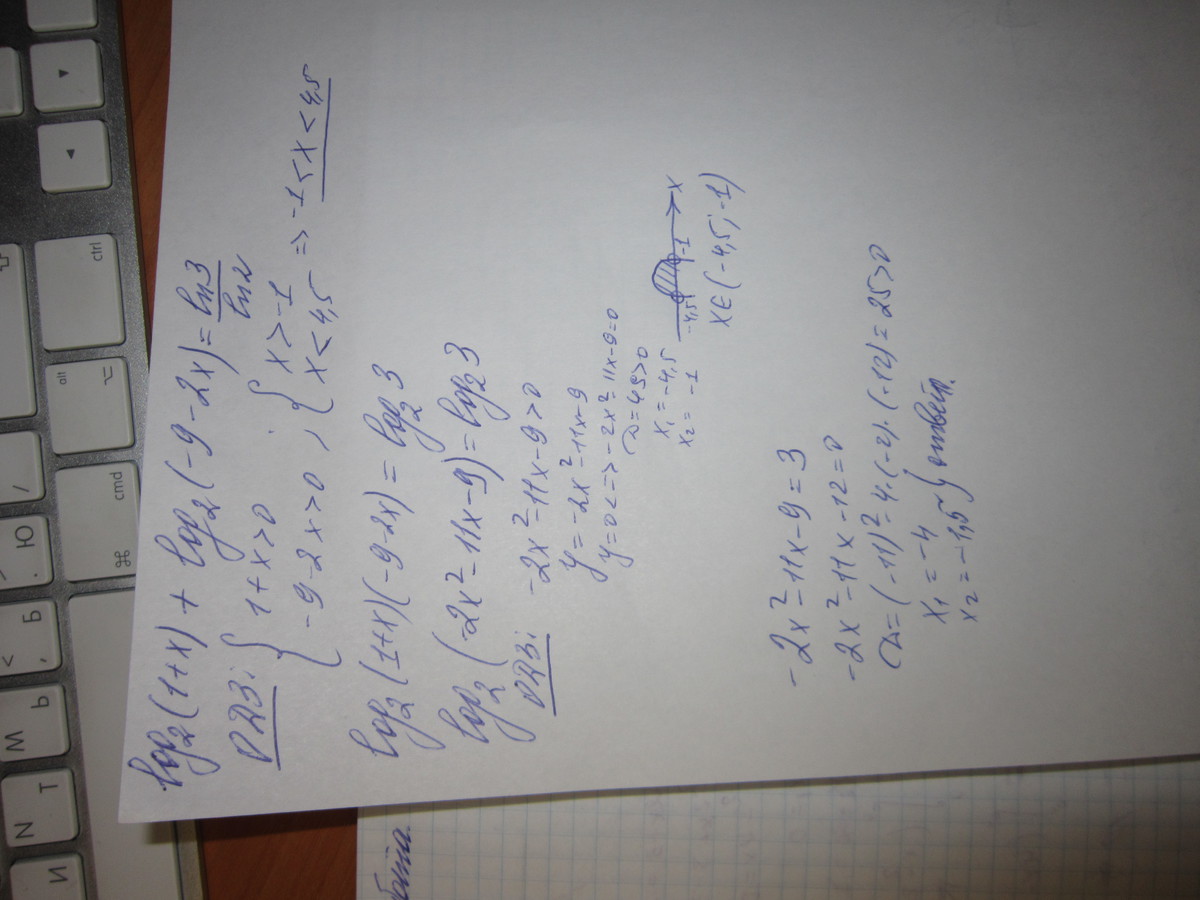 log₂(1+x) + log₂(-9-2x) = ln3/ln2
ОДЗ: { 1+x>0
-9-2x>0 , { x>-1
x<4,5 => -1<x<4,5
log₂(1+x)(-9-2x) = log₂3
log₂(-2x²-11x-9) = log₂3
ОДЗ: -2x²-11x-9>0
y=-2x²-11x-9
y=0<=>-2x²-11x-9=0
D=49>0
x₁=-4,5
x₂=-1
-4,5 -1 x
x∈(-4,5;-1)
-2x²-11x-9=3
-2x²-11x-12=0
D=(-11)²-4·(-2)·(-12)=25>0
x₁=-4
x₂=-1,5 } ответ.
ctrl
alt
⌥
cmd
⌘
/
. Ю
< , Б
Ь
M
T
N
И